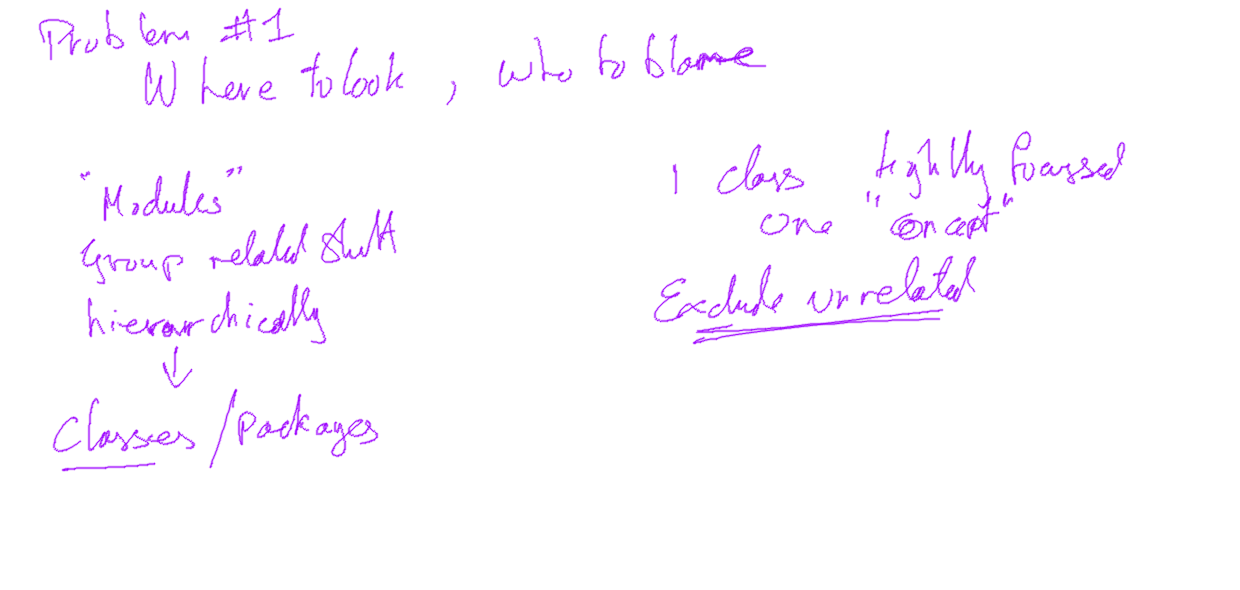 Problem #1
Where to look, who to blame
"Modules"
Group related stuff
hierarchically
↓
Classes/packages
1 class tightly focussed
one "concept"
Exclude unrelated